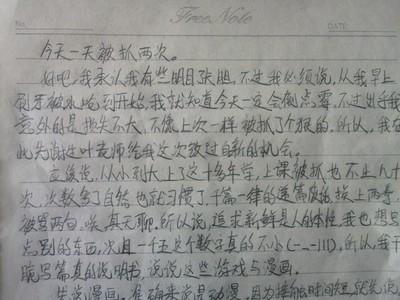 Free Note
No.
DATE
今天一天被抓两次。
好吧,我承认我有些明目张胆,不过我必须说,从我早上
刷牙被水呛到开始,我就知道今天一定会倒点霉,不过出乎我
意外的是损失不大,不像上次一样被抓了个狠的,所以,我在
此先谢过叶老师给我这次改过自新的机会。
应该说,从小到大上了这十多年学,上课被抓也不止几十
次,次数多了自然也就习惯了,千篇一律的递篇检,挨上两骂,
被骂两句,唉,真无聊,所以说,追求新鲜是人的本性,我也想写
点别的东西,况且一千五这个数字真的不小(-_-|||),所以,我干
脆写篇真的说明书,说说这些游戏与漫画。
先说漫画,准确来说是动漫,因为接触时间短,就先说